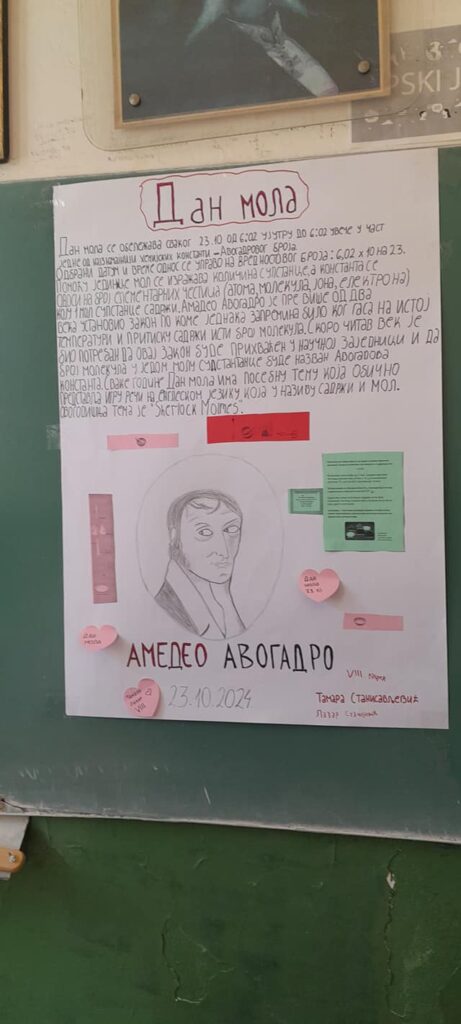 PSKI J
Дан мола
Дан мола се обележава сваког 23.10 од 6:02 ујутру до 6:02 увече у част
једне од најзначајнијих хемијских константи – Авогадровог броја.
Одбрани датум и време односе се управо на вредност овог броја: 6,02 x 10 на 23.
Помоћу јединице мол се изражава количина супстанце, а константа се
односи на број елементарних честица (атома, молекула, јона, електрона)
које 1 мол супстанце садржи. Амедео Авогадро је пре више од два
века установио закон по коме једнака запремина било ког гаса на истој
температури и притиску садржи исти број молекула. Скоро читав век је
био потребан да овај закон буде прихваћен у научној заједници и да
број молекула у једом молу судстантце буде назван Авогадова
константа. Сваке године Дан мола има посебну тему која обично
представља игру речи на енглеском језику која у називу садржи и мол.
Овогодишња тема је "Sherlock Molmes".
Дан
мола
23.10
Дан
мола
АМЕДЕО АВОГАДРО
VIII
23.10.2024.
VIII
Тамара Станисављевић
Лазар